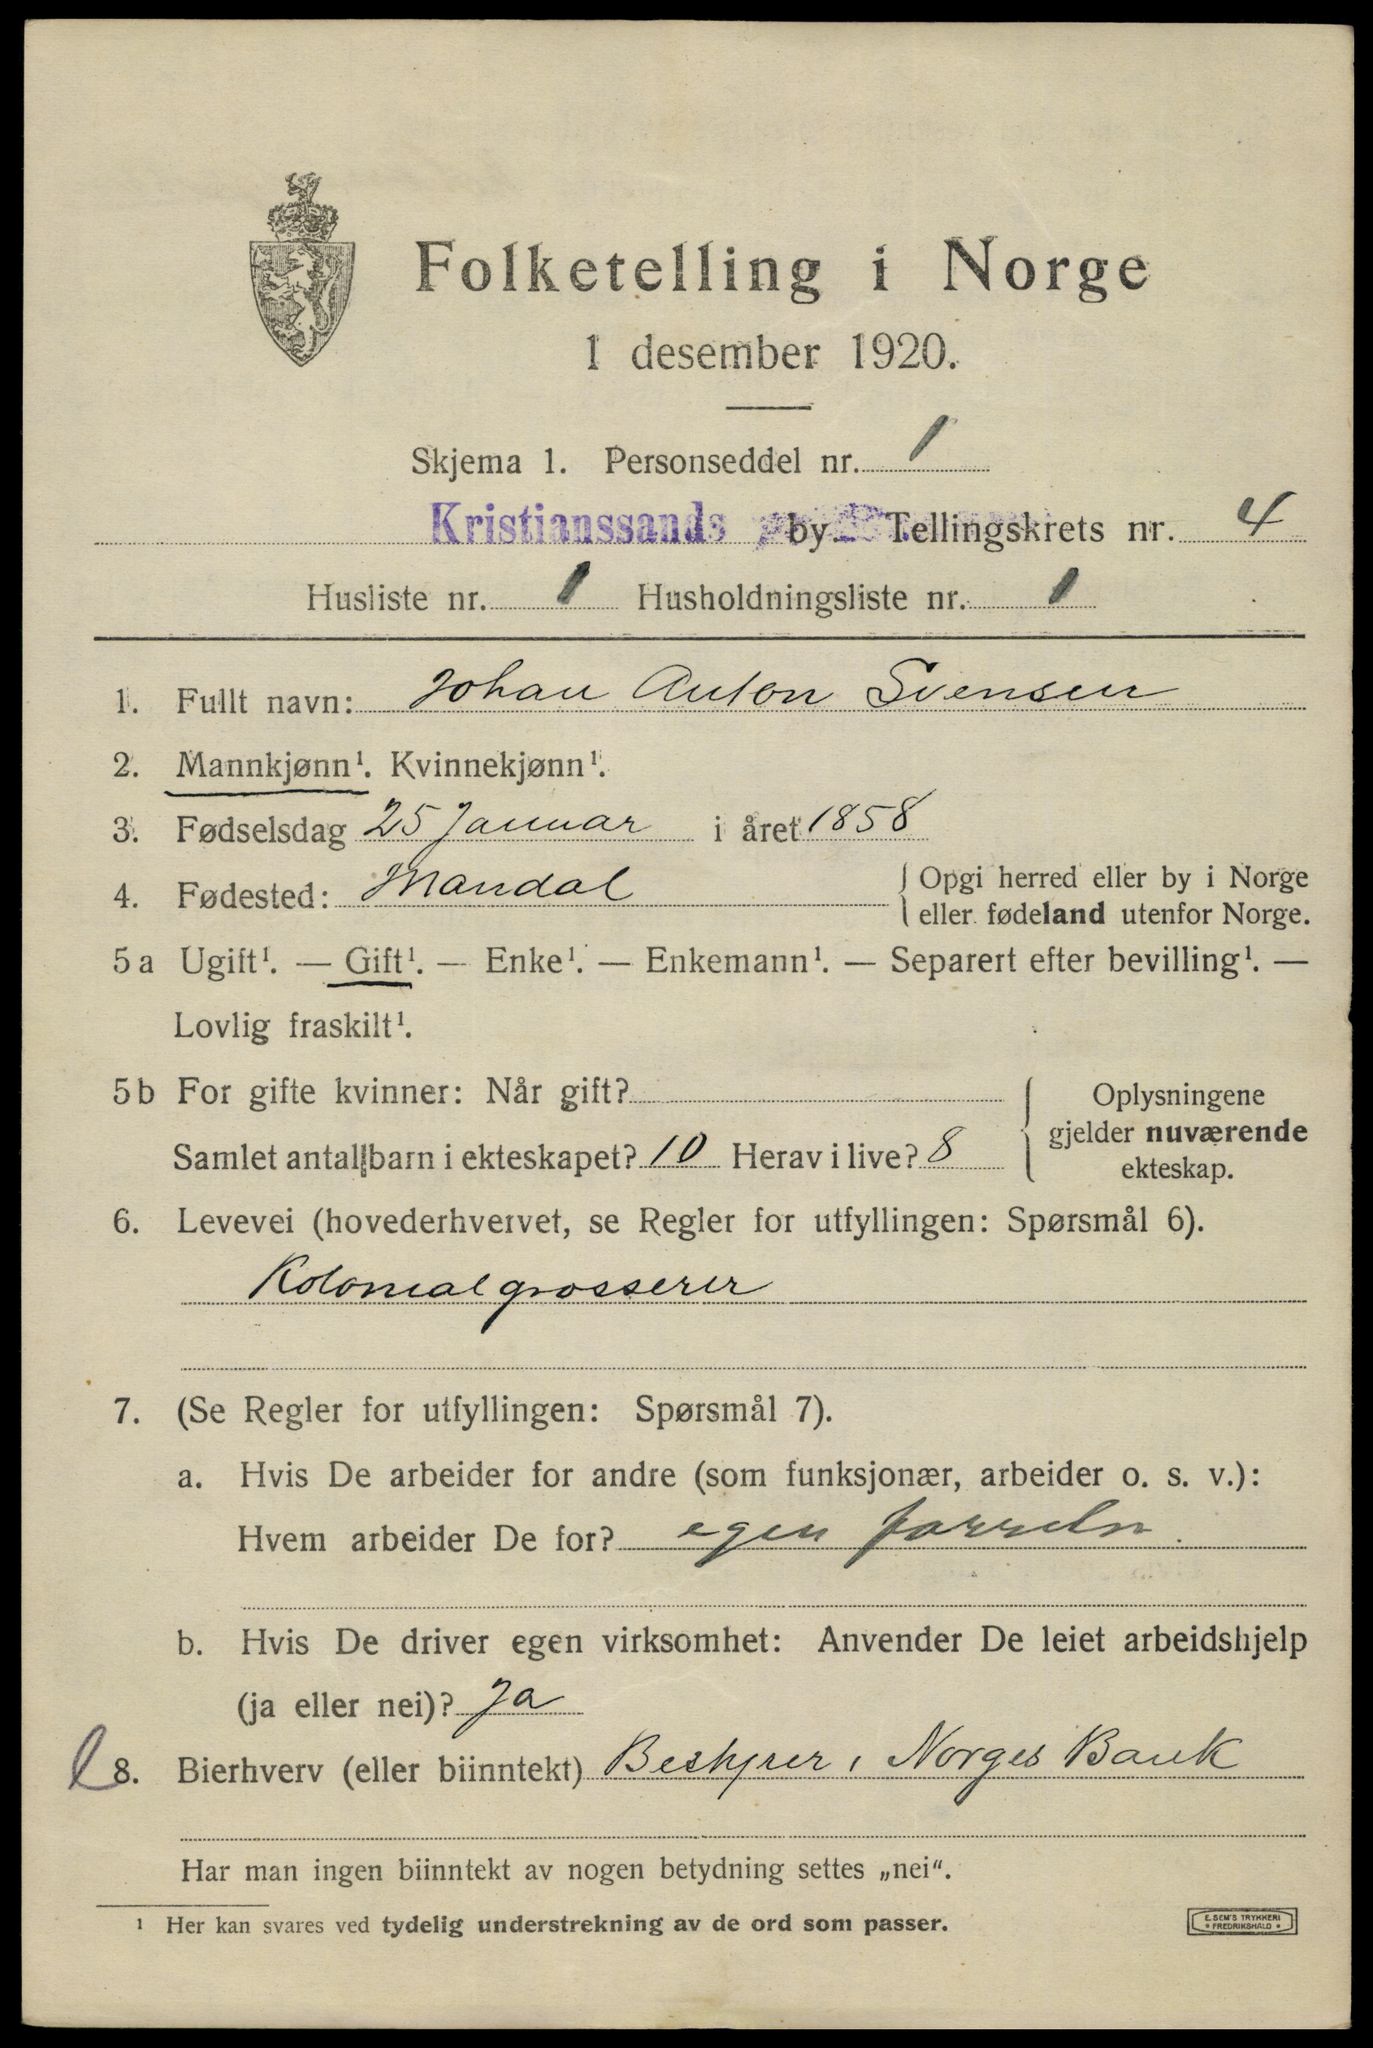 Folketelling i Norge
1 desember 1920.
Skjema 1. Personseddel nr. 1
Kristianssands by. Tellingskrets nr. 4
Husliste nr. 1 Husholdningsliste nr. 1
1. Fullt navn: Johan Anton Svensen
2. Mannkjønn¹. Kvinnekjønn¹.
3. Fødselsdag 25 Januar i året 1858
4. Fødested: Mandal { Opgi herred eller by i Norge
eller fødeland utenfor Norge.
5 a Ugift¹. — Gift¹. — Enke¹. — Enkemann¹. — Separert efter bevilling¹. —
Lovlig fraskilt¹.
5 b For gifte kvinner: Når gift?
Samlet antall barn i ekteskapet? 10 Herav i live? 8
Oplysningene
gjelder nuværende
ekteskap.
6. Levevei (hovederhvervet, se Regler for utfyllingen: Spørsmål 6).
Kolonialgrosserer
7. (Se Regler for utfyllingen: Spørsmål 7).
a. Hvis De arbeider for andre (som funksjonær, arbeider o. s. v.):
Hvem arbeider De for? egen
b. Hvis De driver egen virksomhet: Anvender De leiet arbeidshjelp
(ja eller nei)? Ja
8. Bierhverv (eller biinntekt) Bestyrer i Norges Bank
Har man ingen biinntekt av nogen betydning settes „nei“.
¹ Her kan svares ved tydelig understrekning av de ord som passer.
E. SEM'S TRYKKERI
* FREDRIKSHALD *